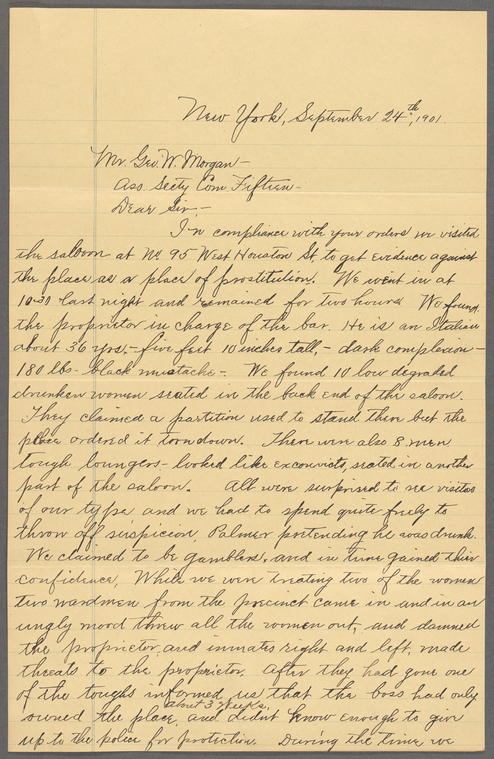 New York, September 24th, 1901.
Mr. Geo. W. Morgan-
Ass. Secty Com. Fifteen-
Dear Sir,-
In compliance with your orders we visited
the saloon at No. 95 West Houston St. to get evidence against
the place as a place of prostitution. We went in at
10-30 last night and remained for two hours. We found
the proprietor in charge of the bar. He is an Italian
about 36 yrs.- five feet 10 inches tall,- dark complexion-
180 lbs- black mustache-. We found 10 low degraded
drunken women seated in the back end of the saloon.
They claimed a partition used to stand there but the
police ordered it torn down. There were also 8 men
tough loungers- looked like exconvicts, seated in another
part of the saloon. All were surprised to see visitors
of our type and we had to spend quite freely to
throw off suspicion, Palmer pretending he was drunk.
We claimed to be gamblers, and in time gained their
confidence. While we were treating two of the women
two wardmen from the precinct came in and in an
ungly mood threw all the women out, and damned
the proprietor, and inmates right and left, made
threats to the proprietor. After they had gone one
of the toughs informed us that the boss had only
about 3 weeks,
owned the place, and didnt know enough to give
up to the police for protection. During the time we